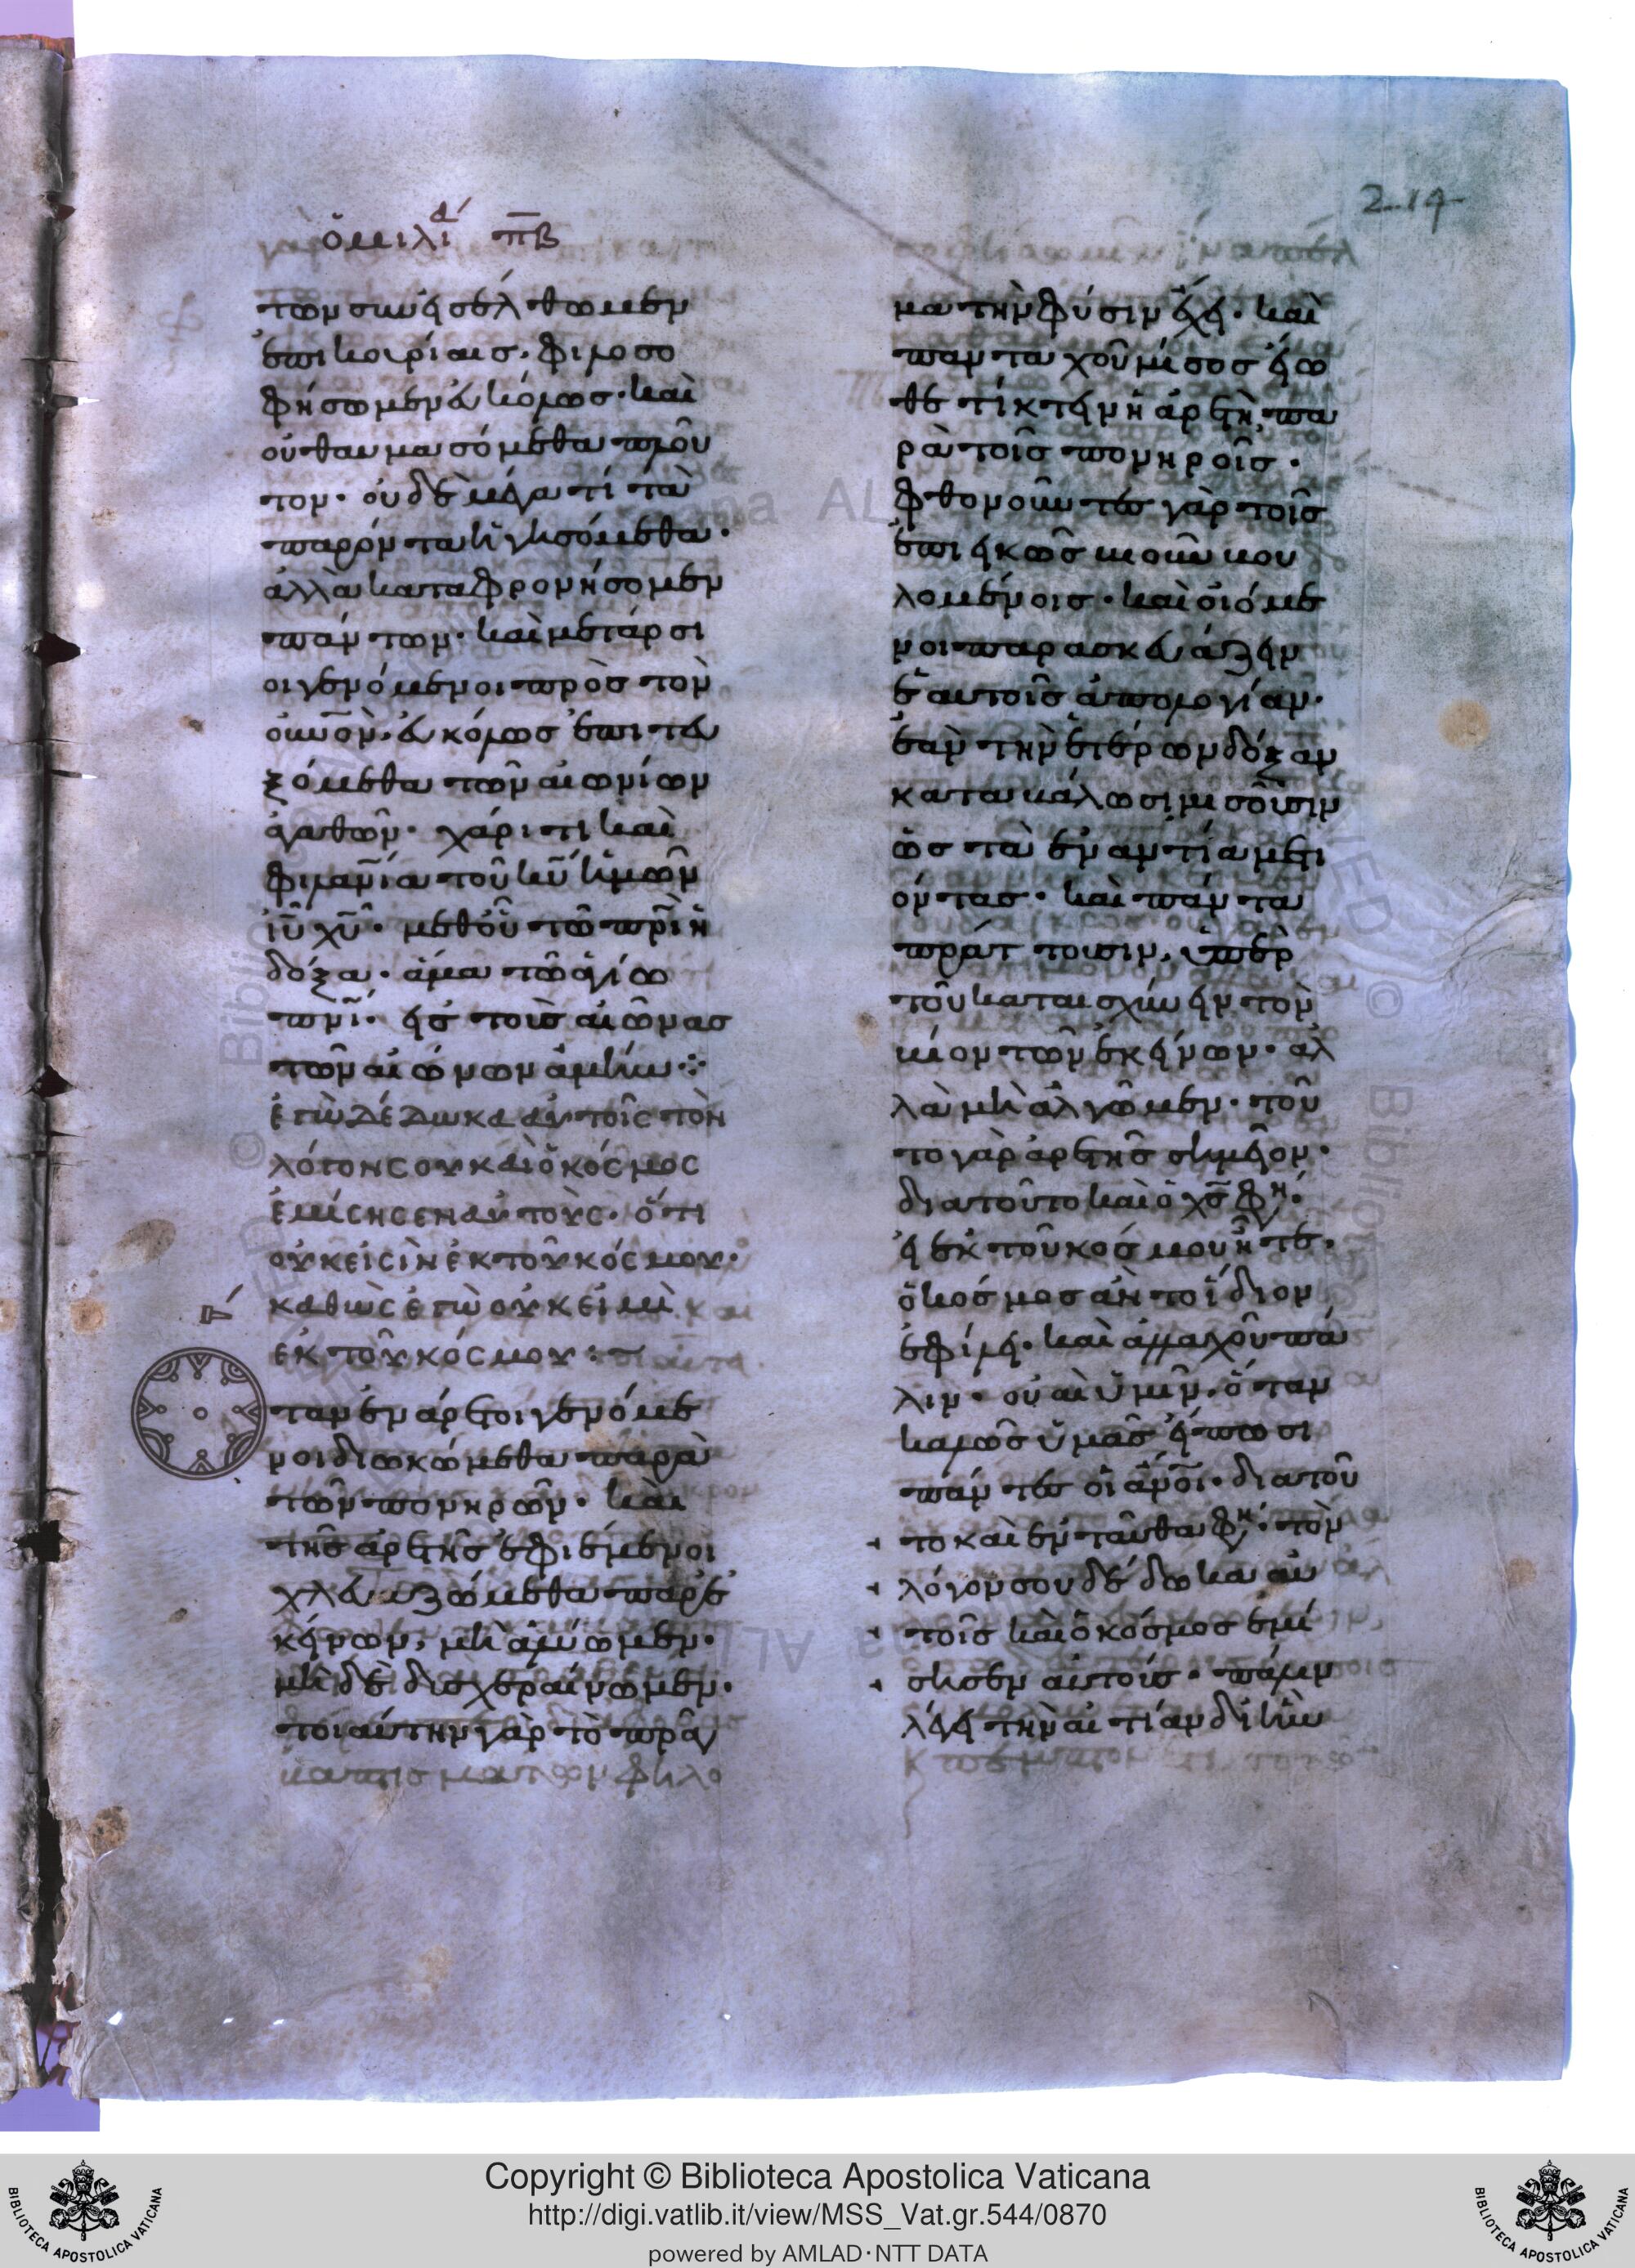 ὁμιλία πβ
214
των συνεισελθωμεν
ἐπικουρίαις. φιλοσο
φήσωμεν εὐκόλως. καὶ
οὐ θαυμασόμεθα πλοῦ
τον. οὐδὲ μέγα τί τὰ
παρόντα ἡγησόμεθα.
ἀλλὰ καταφρονήσομεν
πάντων. καὶ μετάρσι
οι γενόμενοι πρὸς τὸν
οὐνὸν, εὐκόλως ἐπιτευ
ξόμεθα τῶν αἰωνίων
ἀγαθῶν. χάριτι καὶ
φιλανία τοῦ κυ ἡμῶν
ιυ χυ. μεθ οὗ τῶ πρι ἡ
δόξα. ἅμα τῶ ἁγίω
πνι. εἰς τοὺς αἰῶνας
τῶν αἰώνων ἀμήν:
ἐγὼ δέδωκα αὐτοῖς τὸν
λόγον σου καὶ ὁ κόσμος
ἐμίσησεν αὐτοὺς. ὅτι
οὐκ εἰσὶν ἐκ τοῦ κόσμου.
καθὼς ἐγὼ οὐκ εἰμὶ
ἐκ τοῦ κόσμου:
Ὅταν ἐνάρετοι γενόμε
νοι διωκώμεθα παρὰ
τῶν πονηρῶν. καὶ
τῆς ἀρετῆς ἐφιέμενοι
χλευαζώμεθα παρ ἐ
κείνων, μὴ ἀλύωμεν.
μὴ δὲ δυσχεραίνωμεν.
τοιαύτην γὰρ τὸ πρᾶγ
μα τὴν φύσιν ἔχει. καὶ
πανταχοῦ μῖσος εἴω
θε τίκτειν ἡ ἀρετὴ, πα
ρὰ τοῖς πονηροῖς.
φθονοῦντες γὰρ τοῖς
ἐπιεικῶς ζῆν βου
λομένοις. καὶ οἰόμε
νοι παρασκευάζειν
ἑαυτοῖς ἀπολογίαν.
ἐὰν τὴν ἑτέρων δόξαν
καταβάλωσι, μισοῦσιν
ὡς τὰ ἐναντία μετι
όντας. καὶ πάντα
πράττουσιν, ὑπὲρ
τοῦ καταισχύνειν τὸν
βίον τὸν ἐκείνων. ἀλ
λὰ μὴ ἀλγῶμεν. τοῦ
το γὰρ ἀρετῆς σημεῖον.
διατοῦτο καὶ ὁ χς φη.
εἰ ἐκ τοῦ κόσμου ἦτε.
ὁ κόσμος ἂν τὸ ἴδιον
ἐφίλει. καὶ ἀλλαχοῦ πά
λιν. οὐαὶ ὑμῖν, ὅταν
καλῶς ὑμᾶς εἴπωσι
πάντες οἱ ανοι. διατοῦ
το καὶ ἐνταῦθα φη. τὸν
λόγον σου δέδωκα αὐ
τοῖς καὶ ὁ κόσμος ἐμί
σησεν αὐτούς. πάλιν
λέγει τὴν αἰτίαν δι ἣν
Copyright © Biblioteca Apostolica Vaticana
http://digi.vatlib.it/view/MSS_Vat.gr.544/0870
powered by AMLAD·NTT DATA
BIBLIOTECA APOSTOLICA VATICANA
BIBLIOTECA APOSTOLICA VATICANA